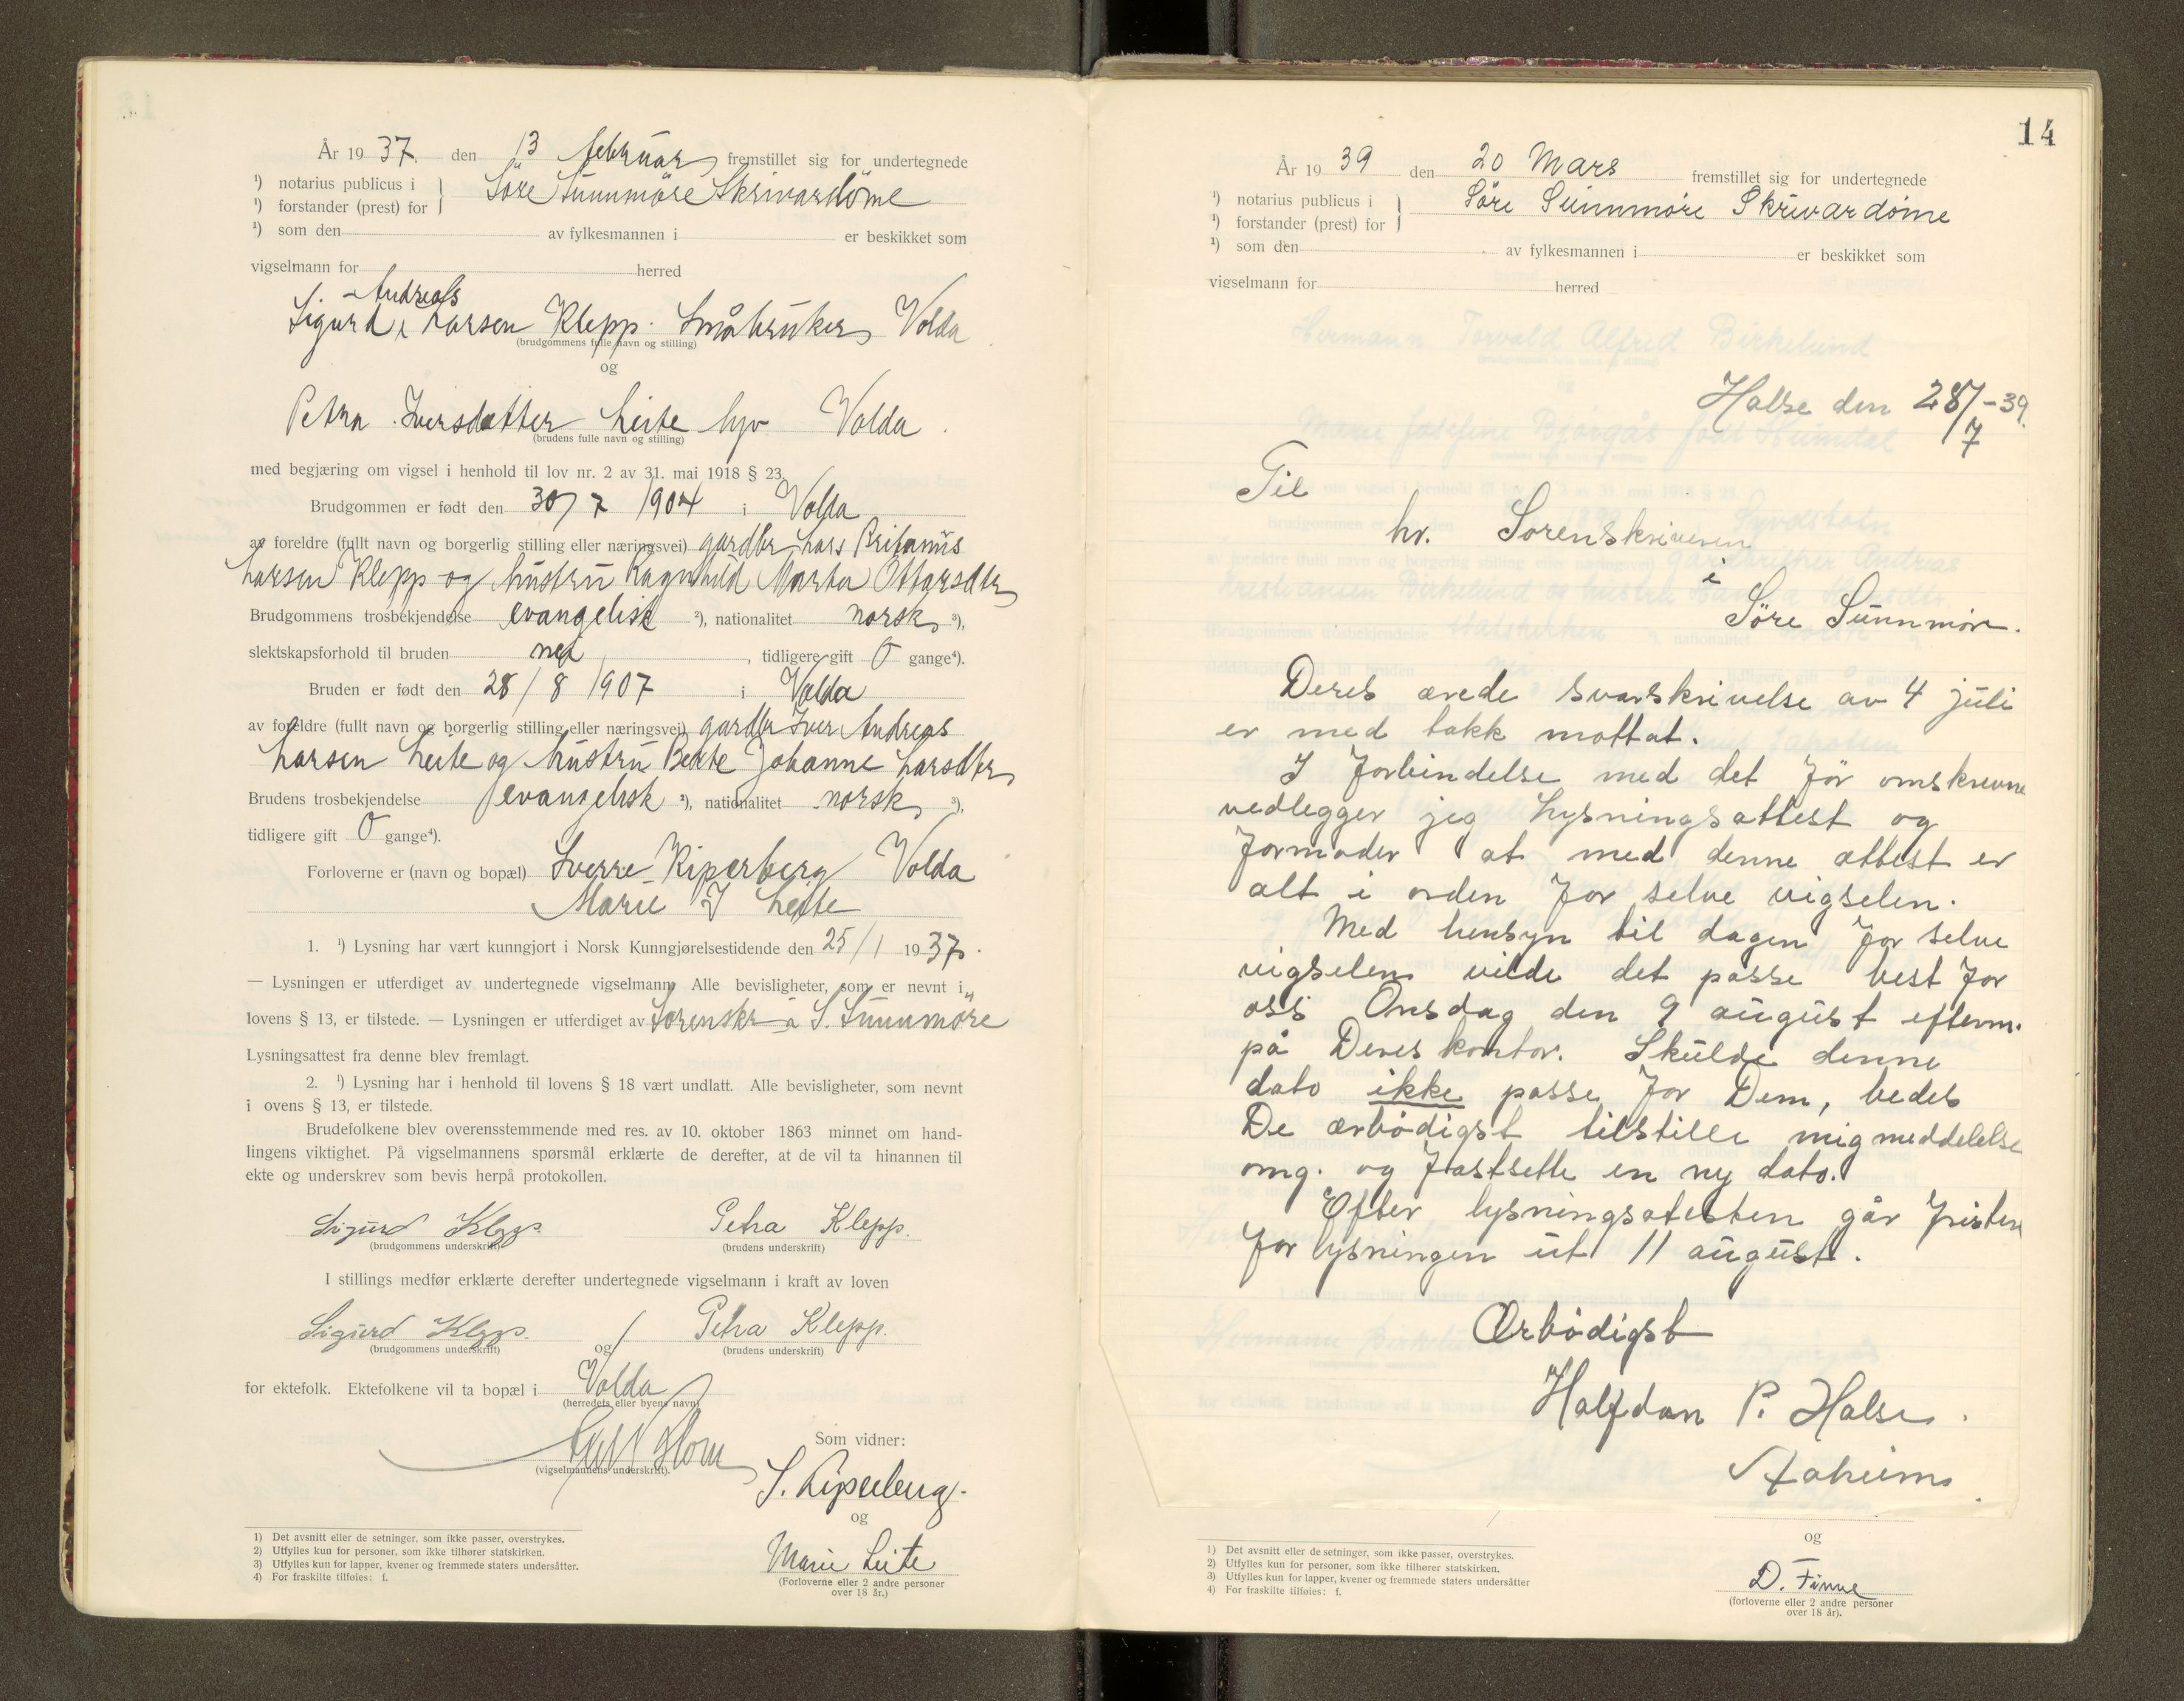 År 1937, den 13 februar fremstillet sig for undertegnede
¹) notarius publicus i } Söre Sunnmöre Skrivardöme
¹) forstander (prest) for
¹) som den av fylkesmannen i er beskikket som
vigselmann for herred
Andreas
Sigurd Larsen Klepp. Småbruker, Volda
(brudgommens fulle navn og stilling)
og
Petra Iversdatter Leite Volda.
(brudens fulle navn og stilling)
med begjæring om vigsel i henhold til lov nr. 2 av 31. mai 1918 § 23.
Brudgommen er født den 30/7 1904 i Volda
av foreldre (fullt navn og borgerlig stilling eller næringsvei) gardbr. Lars
Larsen Klepp og hustru Ragnhild Marta Ottarsdtr
Brudgommens trosbekjendelse evangelisk ²), nationalitet norsk ³),
slektskapsforhold til bruden nei, tidligere gift 0 gange⁴).
Bruden er født den 28/8 1907 i Volda
av foreldre (fullt navn og borgerlig stilling eller næringsvei) gardbr Iver Andreas
Larsen Leite og hustru Berte Johanne Larsdtr
Brudens trosbekjendelse evangelisk ²), nationalitet norsk ³),
tidligere gift 0 gange⁴).
Forloverne er (navn og bopæl) Sverre Kiperberg Volda
Marie I Leite
1. ¹) Lysning har vært kunngjort i Norsk Kunngjørelsestidende den 25/1 1937.
— Lysningen er utferdiget av undertegnede vigselmann. Alle bevisligheter, som er nevnt i
lovens § 13, er tilstede. — Lysningen er utferdiget av Sorenskr. i S. Sunnmöre
Lysningsattest fra denne blev fremlagt.
2. ¹) Lysning har i henhold til lovens § 18 vært undlatt. Alle bevisligheter, som nevnt
i ovens § 13, er tilstede.
Brudefolkene blev overensstemmende med res. av 10. oktober 1863 minnet om hand-
lingens viktighet. På vigselmannens spørsmål erklærte de derefter, at de vil ta hinannen til
ekte og underskrev som bevis herpå protokollen.
Sigurd Klepp. Petra Klepp.
(brudgommens underskrift) (brudens underskrift)
I stillings medfør erklærte derefter undertegnede vigselmann i kraft av loven
Sigurd Klepp. og Petra Klepp.
(brudgommens underskrift) (brudens underskrift)
for ektefolk. Ektefolkene vil ta bopæl i Volda
(herredets eller byens navn)
Som vidner:
(vigselmannens underskrift).
S. Kiperberg.
og
Marie Leite
(Forloverne eller 2 andre personer
over 18 år.)
1) Det avsnitt eller de setninger, som ikke passer, overstrykes.
2) Utfylles kun for personer, som ikke tilhører statskirken.
3) Utfylles kun for lapper, kvener og fremmede staters undersåtter.
4) For fraskilte tilføies: f.
14
År 1939 den 20 Mars fremstillet sig for undertegnede
¹) notarius publicus i } Söre Sunnmöre Skrivardöme
¹) forstander (prest) for
¹) som den av fylkesmannen i er beskikket som
vigselmann for herred
Halse den 28/7-39.
Til
hr. Sorenskriveren
i
Söre Sunnmöre.
Deres ærede svarskrivelse av 4 juli
er med takk mottat.
I forbindelse med det för omskrevne
vedlegger jeg Lysningsattest og
formoder at med denne attest er
alt i orden for selve vigselen.
Med hensyn til dagen for selve
vigselen vilde det passe best for
oss Onsdag den 9 august efterm.
på Deres kontor. Skulde denne
dato ikke passe for Dem, bedes
De ærbödigst tilstille mig meddelelse
omg. og fastsette en ny dato.
Efter lysningsatesten går fristen
for lysningen ut 11 august.
Ærbödigst
Halfdan P. Halse.
Aaheim.
og
D. Finne
(forloverne eller 2 andre personer
over 18 år).
1) Det avsnitt eller de setninger, som ikke passer, overstrykes.
2) Utfylles kun for personer, som ikke tilhører statskirken.
3) Utfylles kun for lapper, kvener og fremmede staters undersåtter
4) For fraskilte tilføies: f.